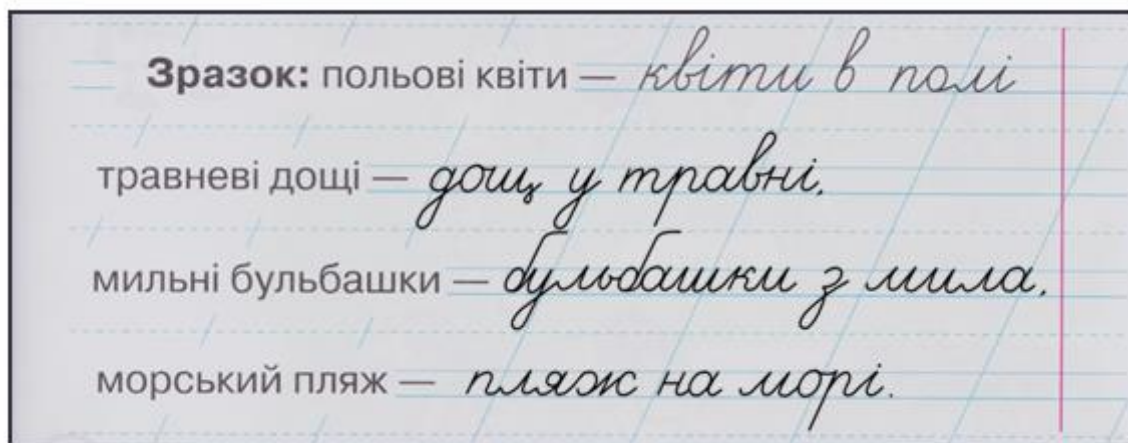 Зразок: польові квіти — квіти в полі
травневі дощі — дощ у травні.
мильні бульбашки — бульбашки з мила.
морський пляж — пляж на морі.